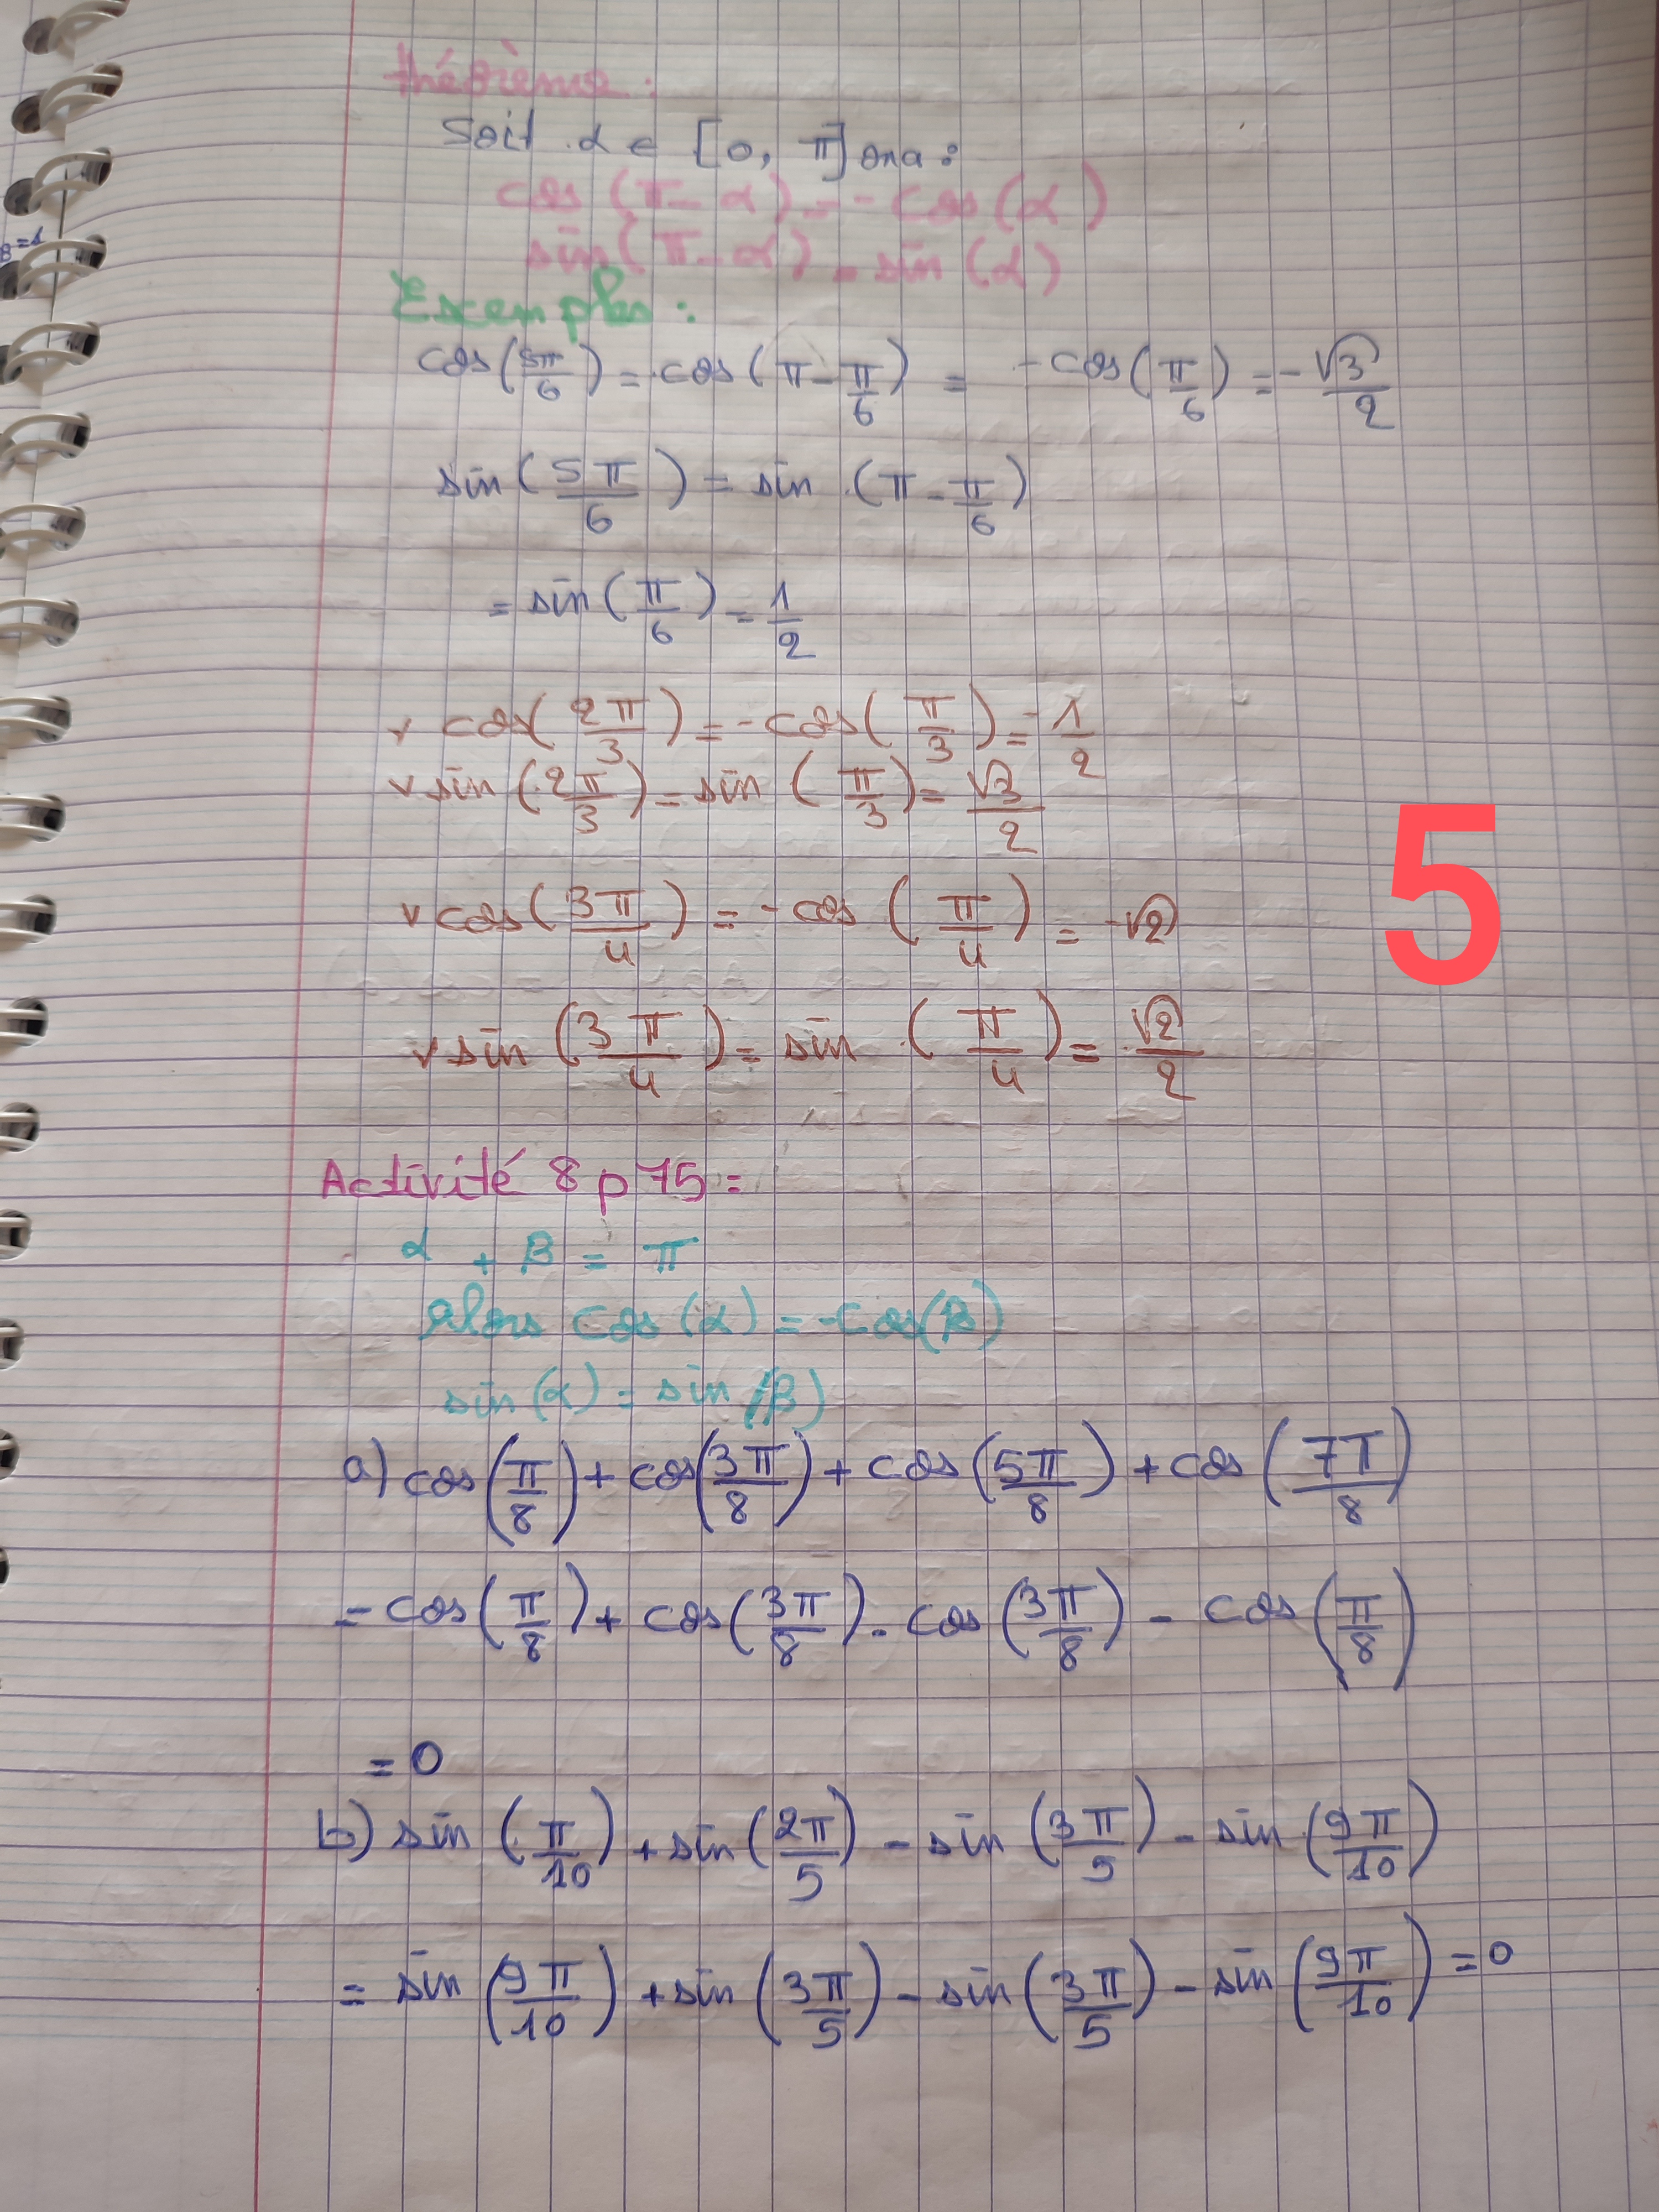 théorème :
Soit α ∈ [0, π] ona :
cos (π - α) = - cos (α)
sin (π - α) = sin (α)
Exemples :
cos (5π/6) = cos (π - π/6) = - cos (π/6) = - √3/2
sin (5π/6) = sin (π - π/6)
= sin (π/6) = 1/2
v cos (2π/3) = - cos (π/3) = - 1/2
v sin (2π/3) = sin (π/3) = √3/2
v cos (3π/4) = - cos (π/4) = - √2
v sin (3π/4) = sin (π/4) = √2/2
5
Activité 8 p 75 =
α + β = π
Alors cos (α) = - cos (β)
sin (α) = sin (β)
a) cos (π/8) + cos (3π/8) + cos (5π/8) + cos (7π/8)
= cos (π/8) + cos (3π/8) - cos (3π/8) - cos (π/8)
= 0
b) sin (π/10) + sin (2π/5) - sin (3π/5) - sin (9π/10)
= sin (9π/10) + sin (3π/5) - sin (3π/5) - sin (9π/10) = 0